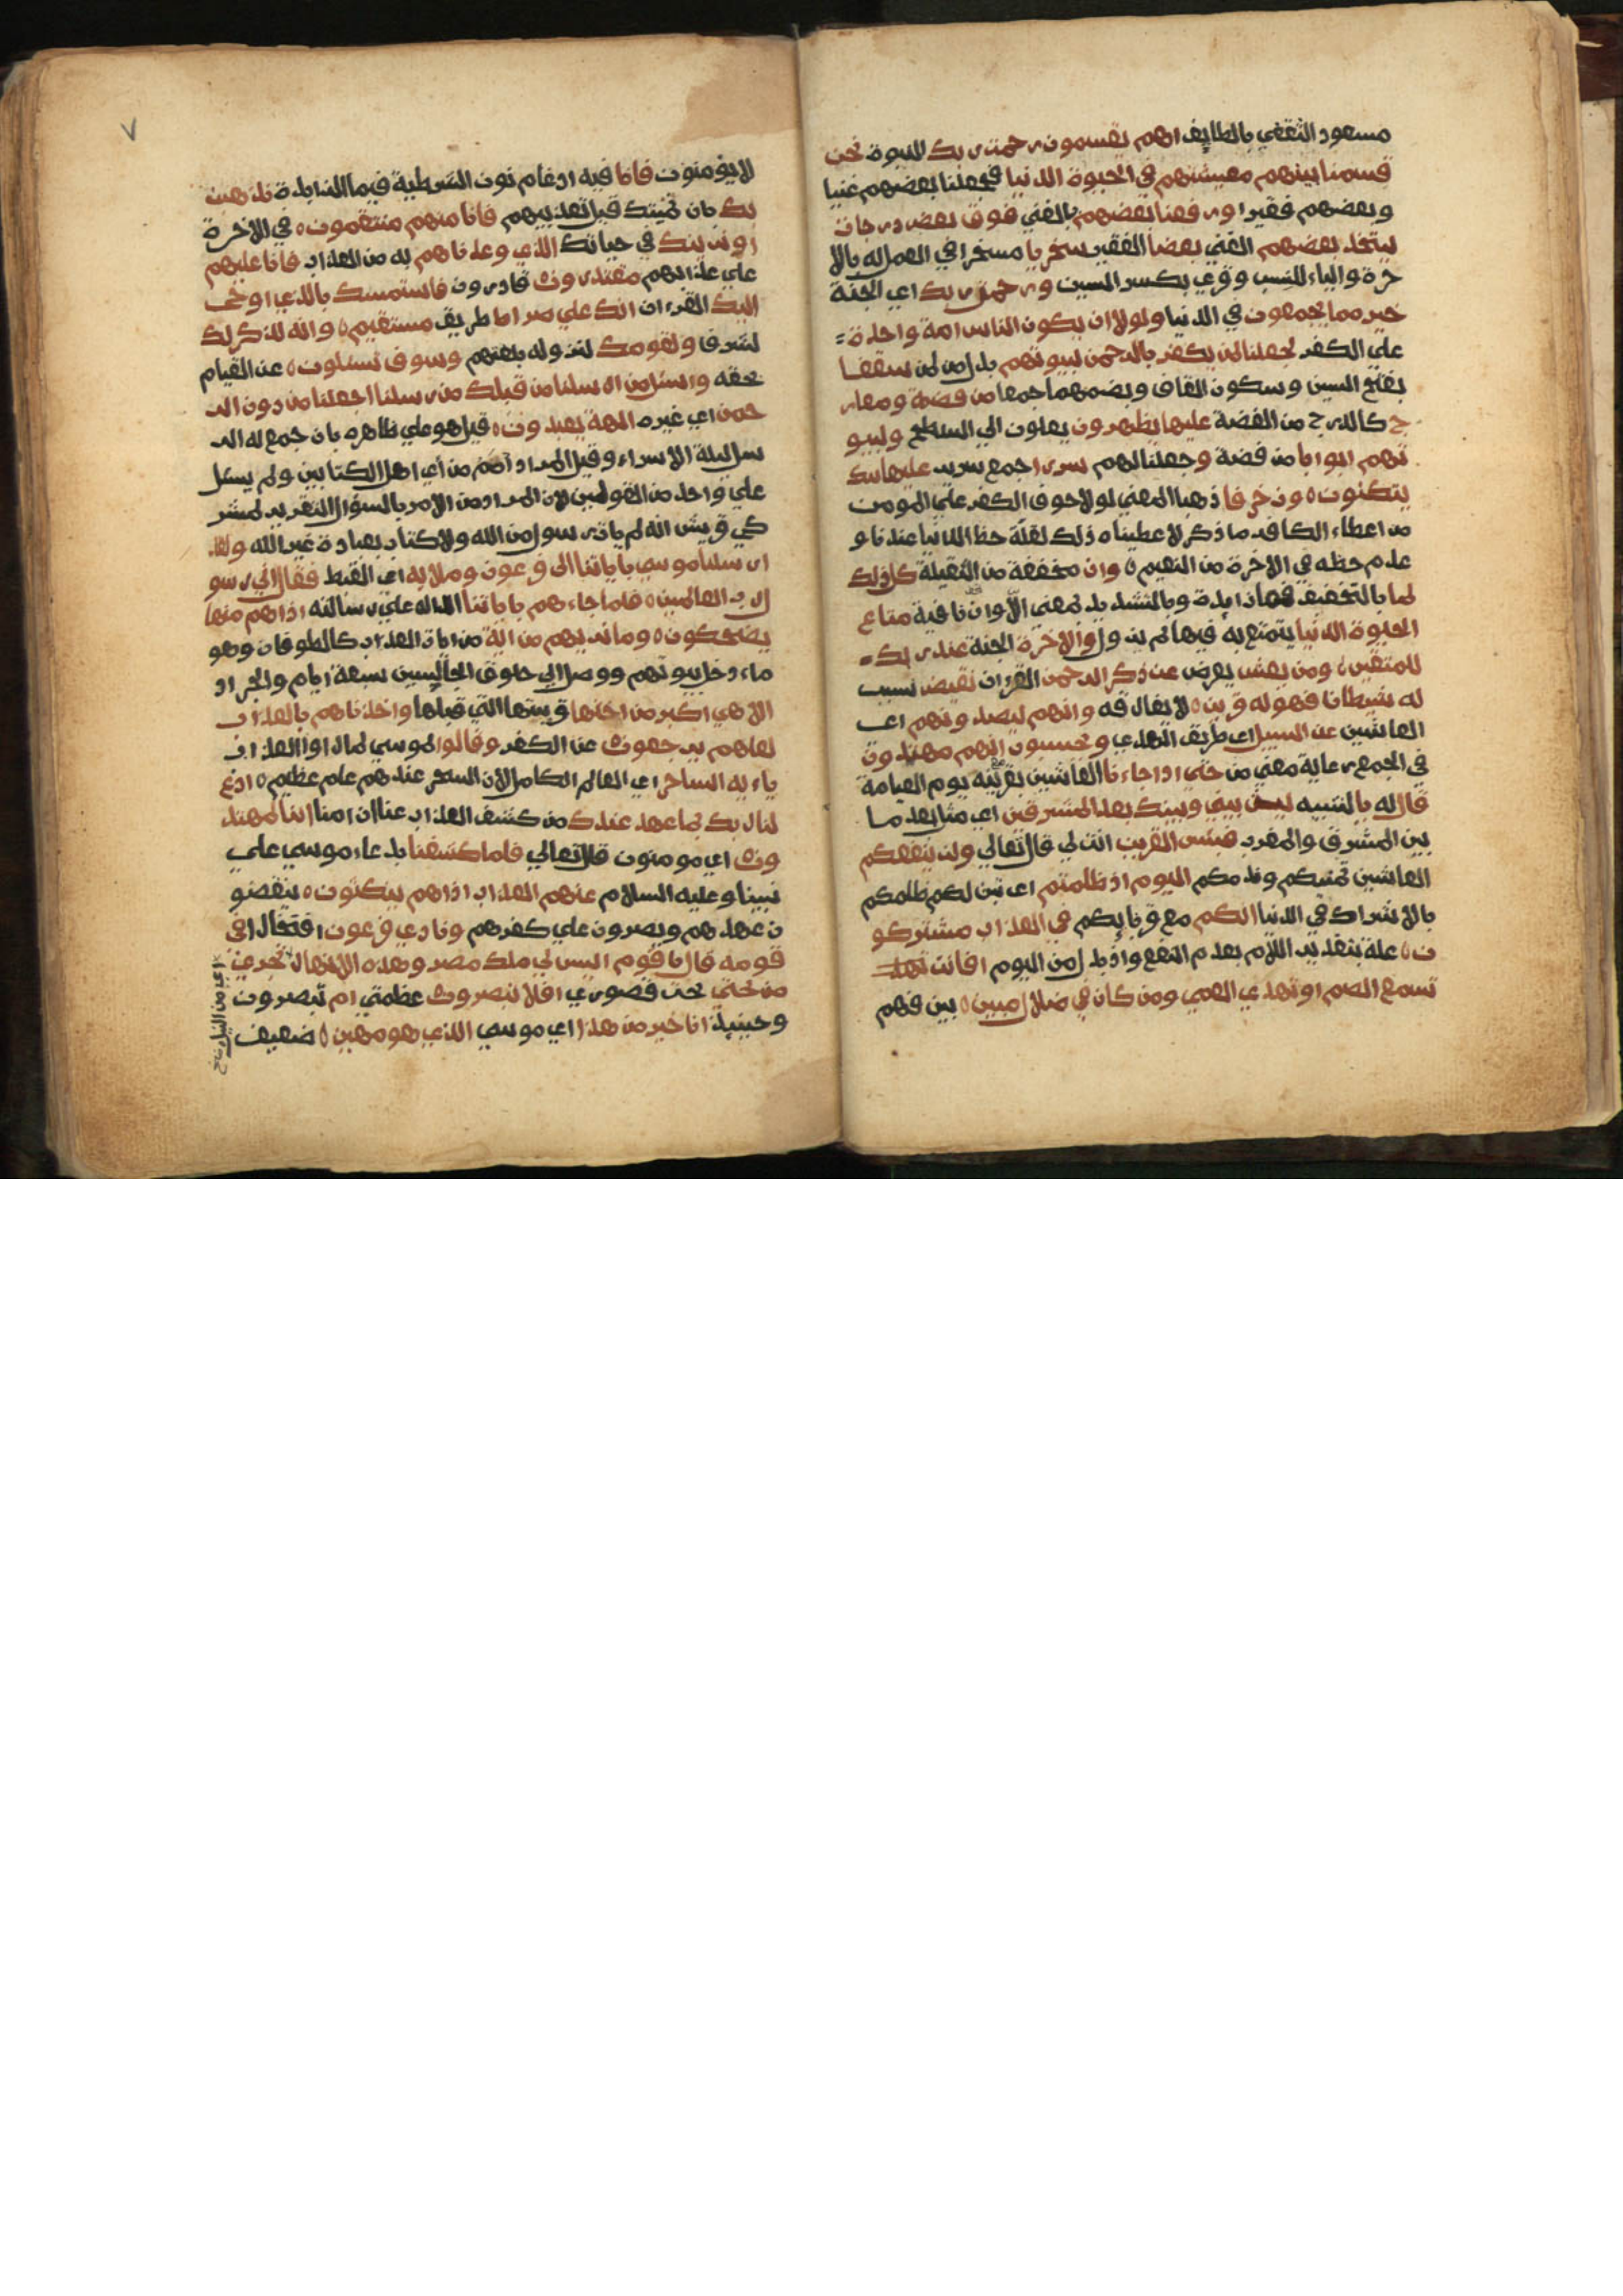 مسعود الثقفي بالطايف اهم يقسمون رحمت ربك النبوة نحن
قسمنا بينهم معيشتهم في الحيوة الدنيا فجعلنا بعضهم غنيا
وبعضهم فقيرا ورفعنا بعضهم بالغني فوق بعض درجات
ليتخذ بعضهم الغني بعضا الفقير سخريا مسخرا في العمل له بالا
جرة والياء للنسب وقري بكسر السين ورحمت ربك اي الجنة
خير مما يجمعون في الدنيا ولولا ان يكون الناس امة واحدة
علي الكفر لجعلنا لمن يكفر بالرحمن لبيوتهم بدل من لمن سقفا
بفتح السين وسكون القاف وبضمهما جمعا من فضة ومعار
ج كالدرج من الفضة عليها يظهرون يعلون الي السطح ولبيو
تهم ابوابا من فضة وجعلنا لهم سررا جمع سرير عليها
يتكئون ه وزخرفا ذهبا المعني لولا خوف الكفر علي المومن
من اعطاء الكافر ما ذكر لاعطيناه ذلك لقلة حظ الدنيا عندنا و
عدم حظه في الاخرة من النعيم ه وان مخففة من الثقيلة كل ذلك
لما بالتخفيف فما زايدة وبالتشديد بمعني الا وان نافية متاع
الحيوة الدنيا يتمتع به فيها ثم يزول والاخرة الجنة عند ربك
للمتقين ه ومن يعش يعرض عن ذكر الرحمن القران نقيض نسبب
له شيطانا فهو له قرين ه لا يفارقه وانهم ليصدونهم اي
العاشين عن السبيل اي طريق الهدي ويحسبون انهم مهتدون
في الجمع رعاية معني من حتي اذا جاءنا العاشين بقرينه يوم القيامة
قال له يا لتنبيه ليت بيني وبينك بعد المشرقين اي مثل بعد ما
بين المشرق والمغرب فبئس القرين انت لي قال تعالي ولن ينفعكم
العاشين تمنيكم وندمكم اليوم اذ ظلمتم اي تبين لكم ظلمكم
بالاشراك في الدنيا انكم مع قرنايكم في العذاب مشتركو
ن ه علة بتقدير اللام بعدم النفع واذ بدل من اليوم افانت
تسمع الصم او تهدي العمي ومن كان في ضلال مبين ه بين فهم
٧
لا يؤمنون فاما فيه ادغام نون الشرطية في ما الزايدة نذهبن
بك بان نميتك قبل تعذيبهم فانا منهم منتقمون ه في الاخرة
او نرينك في حياتك الذي وعدناهم به من العذاب فانا عليهم
علي عذابهم مقتدرون قادرون فاستمسك بالذي اوحي
اليك القرءان انك علي صراط طريق مستقيم ه وانه لذكر لك
لشرف ولقومك لنزوله بلغتهم وسوف تسئلون ه عن القيام
بحقه واسئل من ارسلنا من قبلك من رسلنا اجعلنا من دون الر
حمن اي غيره الهة يعبدون ه قيل هو علي ظاهره بان جمع له الر
سل ليلة الاسراء وقيل المراد امم من اي اهل الكتابين ولم يسئل
علي واحد من القولين لان المراد من الامر بالسؤال التقرير لمشر
كي قريش انه لم يات رسول من الله ولا كتاب بعبادة غير الله ولقد
ارسلنا موسي باياتنا الي فرعون وملايه اي القبط فقال اني رسو
ل رب العالمين ه فلما جاءهم باياتنا الدالة علي رسالته اذا هم منها
يضحكون ه وما نريهم من اية من ايات العذاب كالطوفان وهو
ماء دخل بيوتهم ووصل الي حلوق الجالسين سبعة ايام والجراد
الا هي اكبر من اختها قرينتها التي قبلها واخذناهم بالعذاب
لعلهم يرجعون عن الكفر وقالوا لموسي لما راوا العذاب
ياءيه الساحر اي العالم الكامل لان السحر عندهم علم عظيم ه ادع
لنا ربك بما عهد عندك من كشف العذاب عنا ان امنا اننا لمهتد
ون اي مومنون قال تعالي فلما كشفنا بدعاء موسي علي
نبينا وعليه السلام عنهم العذاب اذا هم ينكثون ه ينقضو
ن عهدهم ويصرون علي كفرهم ونادي فرعون افتخارا في
قومه قال يا قوم اليس لي ملك مصر وهذه الانهار تجري
من تحتي تحت قصوري افلا تبصرون عظمتي ام تبصرون
وحينيذ انا خير من هذا اي موسي الذي هو مهين ه ضعيف
اي من النيل